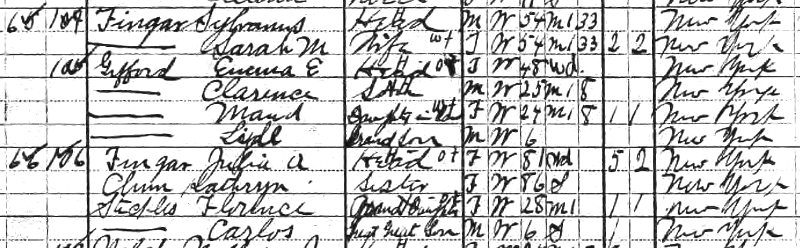 65 104 Fingar Sylvanus Head M W 54 M1 33 New York
—— Sarah M Wife wt F W 54 M1 33 2 2 New York
105 Gifford Emma E Head ot F W 48 Wd New York
—— Clarence Son M W 25 M1 8 New York
—— Maud Daughter in law wt F W 24 M1 8 1 1 New York
—— Lisle Grand Son M W 6 New York
66 106 Fingar Julia A Head ot F W 81 Wd 5 2 New York
Clum Kathryn Sister F W 86 S New York
Staples Florence Grand Daughter F W 28 M1 1 1 New York
—— Carlos Great Son M W 6 S 1 New York